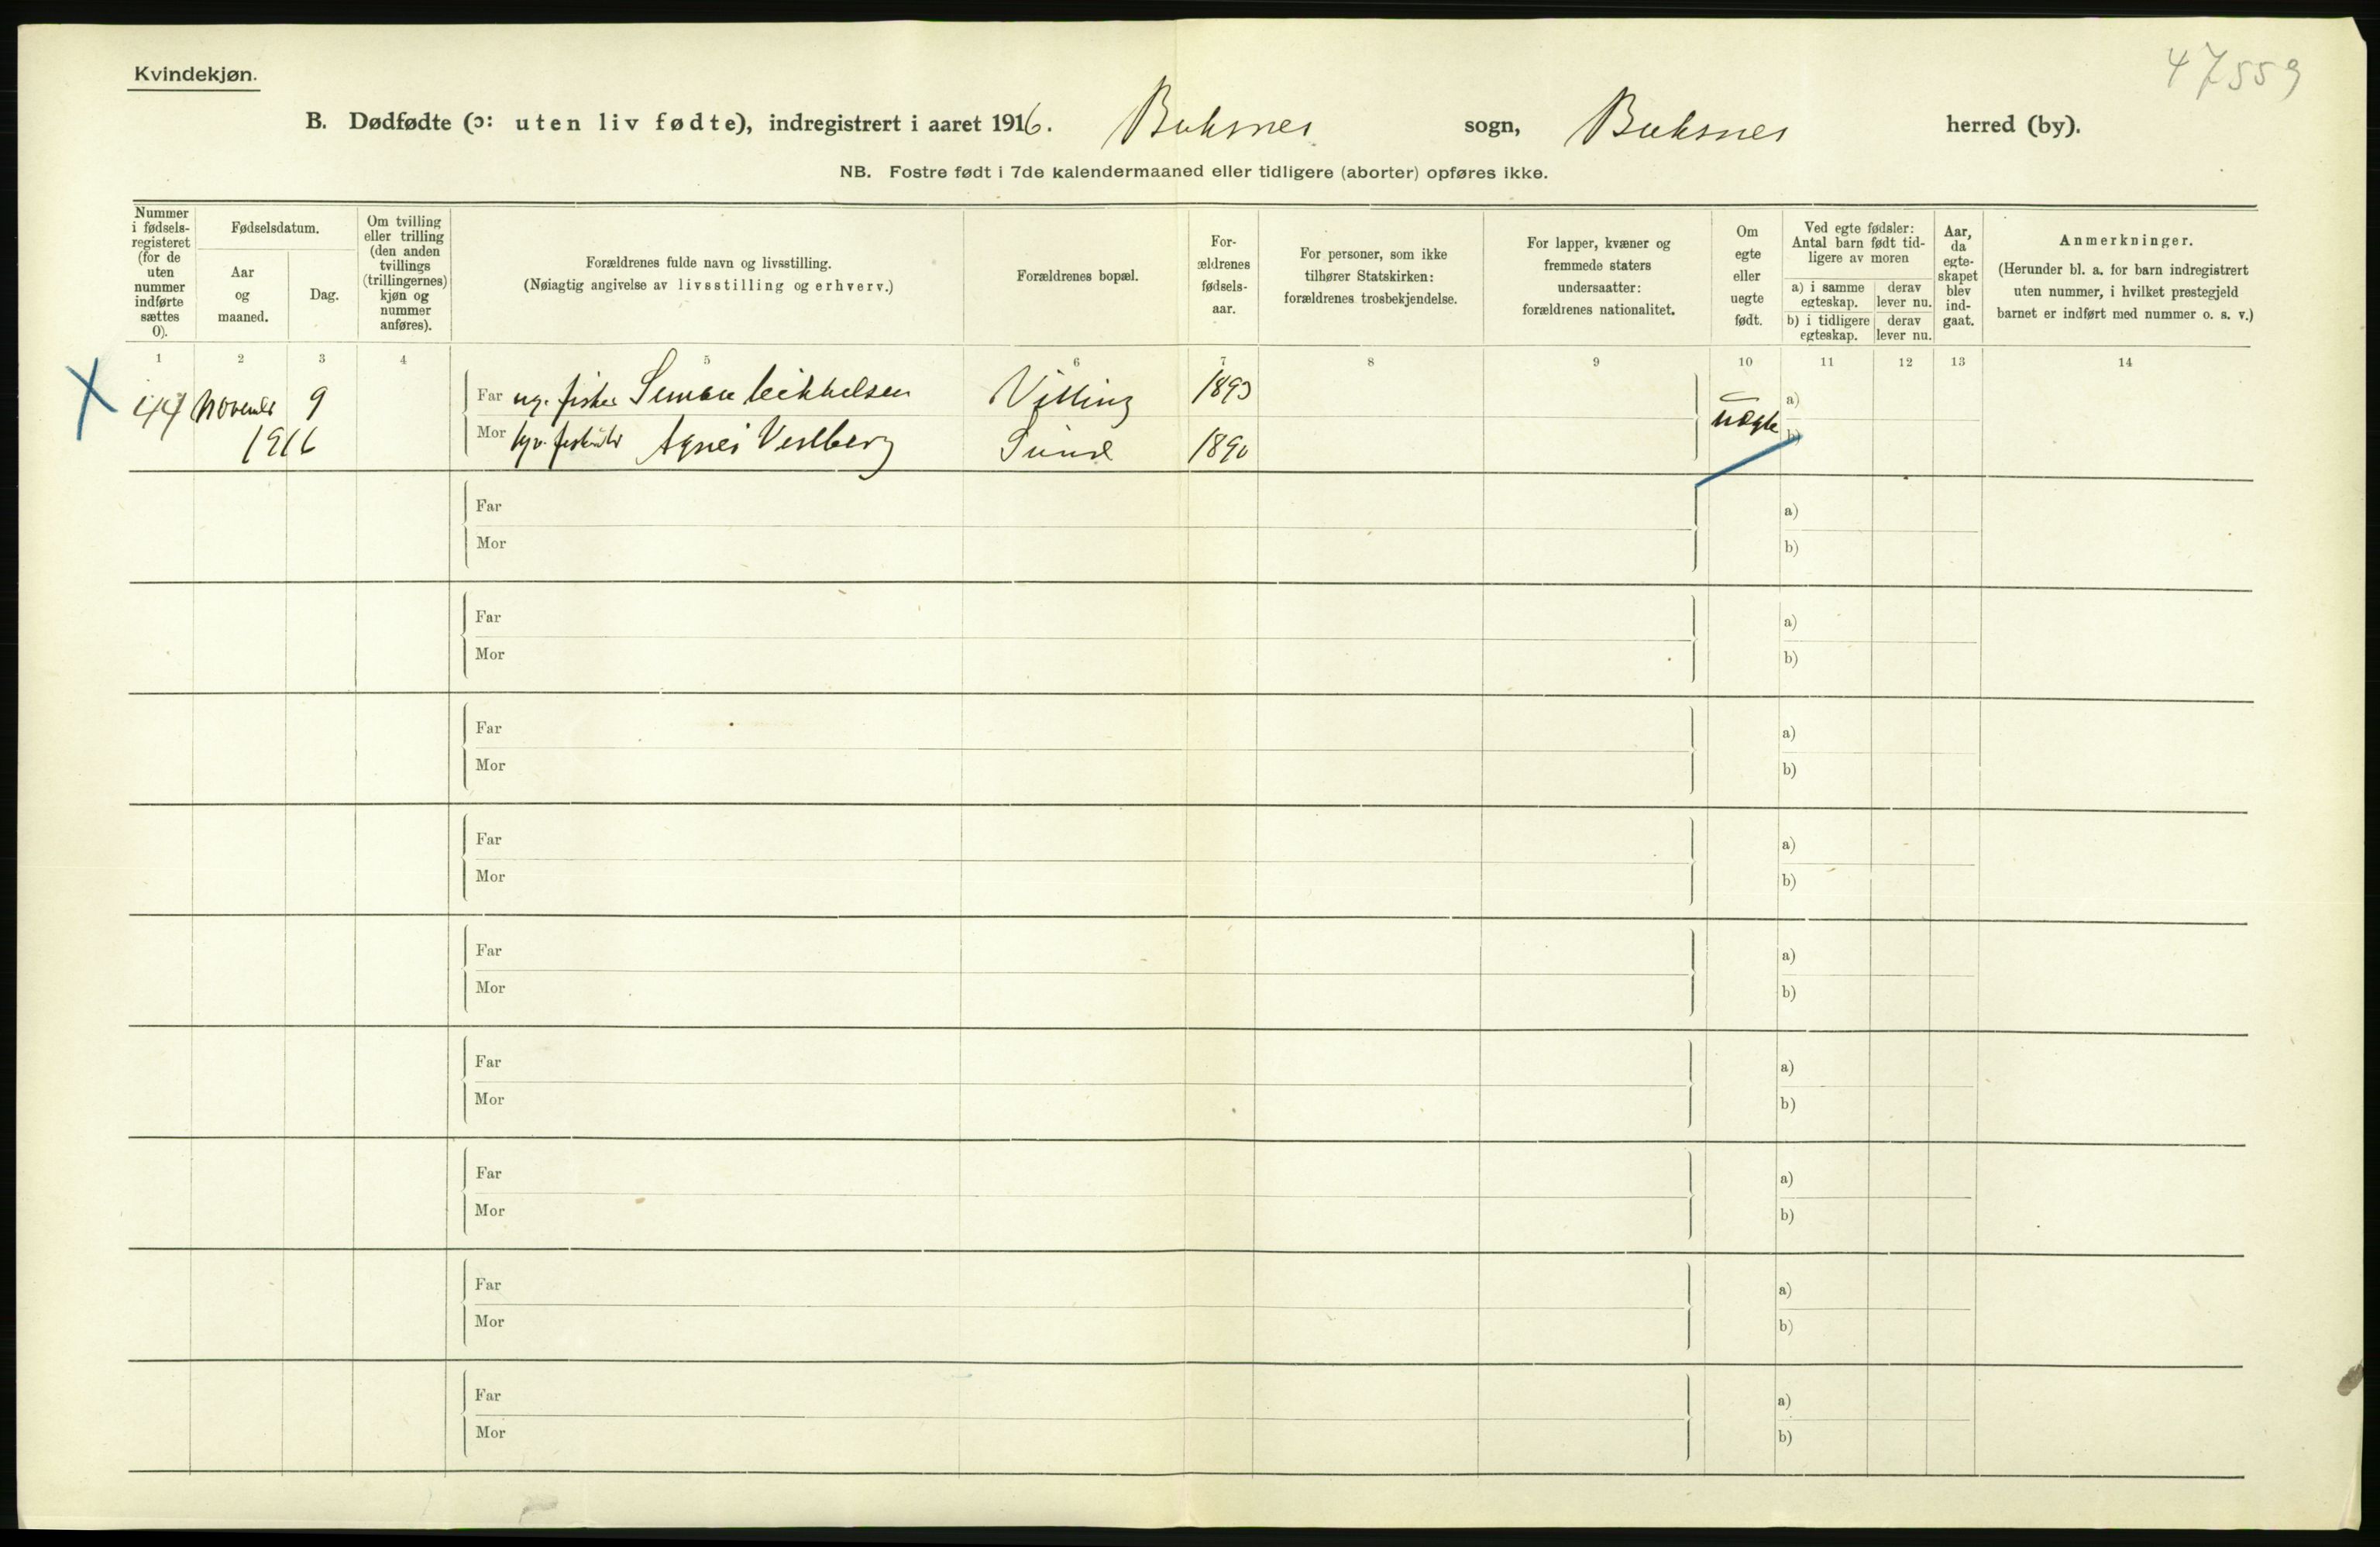 47559
Kvindekjøn.
B. Dødfødte (ɔ: uten liv fødte), indregistrert i aaret 1916. Buksnes sogn, Buksnes herred (by).
NB. Fostre født i 7de kalendermaaned eller tidligere (aborter) opføres ikke.
Nummer i fødsels-registeret (for de uten nummer indførte sættes 0).
Fødselsdatum.
Aar og maaned.
Dag.
Om tvilling eller trilling (den anden tvillings (trillingernes) kjøn og nummer anføres).
Forældrenes fulde navn og livsstilling.
(Nøiagtig angivelse av livsstilling og erhverv.)
Forældrenes bopæl.
For-ældrenes fødsels-aar.
For personer, som ikke tilhører Statskirken: forældrenes trosbekjendelse.
For lapper, kvæner og fremmede staters undersaatter: forældrenes nationalitet.
Om egte eller uegte født.
Ved egte fødsler: Antal barn født tid-ligere av moren
a) i samme egteskap.
derav lever nu.
b) i tidligere egteskap.
derav lever nu.
Aar, da egte-skapet blev ind-gaat.
Anmerkninger.
(Herunder bl. a. for barn indregistrert uten nummer, i hvilket prestegjeld barnet er indført med nummer o. s. v.)
1 2 3 4 5 6 7 8 9 10 11 12 13 14
44 November 9 Far ug. fisker 1893 uægte a)
1916 Mor Agnes Vestberg Sund 1890 b)
Far a)
Mor b)
Far a)
Mor b)
Far a)
Mor b)
Far a)
Mor b)
Far a)
Mor b)
Far a)
Mor b)
Far a)
Mor b)
Far a)
Mor b)
Far a)
Mor b)